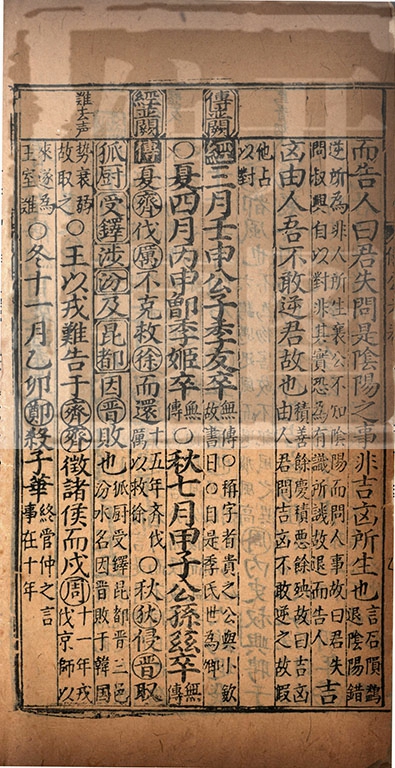 而告人曰君失問是陰陽之事非吉凶所生也言石隕鷁退陰陽錯
逆所為非人所生襄公不知陰陽而問人事故曰君失問叔興自以對非其實恐為有識所譏故退而告人吉
凶由人吾不敢逆君故也積善餘慶積惡餘殃故曰吉凶由人君問吉凶不敢逆之故假
他占以對
傳並闕
經三月壬申公子季友卒無傳○稱字者貴之公與小斂故書日○自是季氏世為卿
○夏四月丙申鄫季姬卒無傳○秋七月甲子公孫茲卒無傳
經並闕
傳夏齊伐厲不克救徐而還十五年齊伐厲以救徐○秋狄侵晉取
狐厨受鐸涉汾及昆都因晉敗也狐厨受鐸昆都晉三邑汾水名因晉敗于韓國
難去声
勢衰弱故取之○王以戎難告于齊齊徵諸侯而戍周十一年戎伐京師以
來遂為王室難○冬十一月乙卯鄭殺子華終管仲之言事在十年